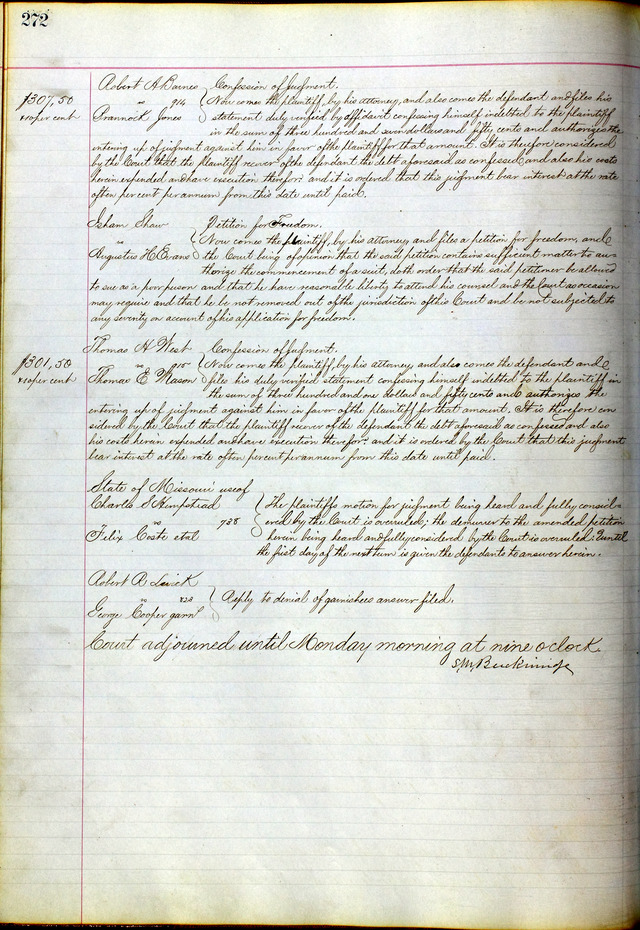 272
Robert A Barnes Confession of Judgment.
$307,50 vs 914 Now comes the plaintiff, by his attorney, and also comes the defendant and files his
10 per cent Jones statement duly verified by affidavit confessing himself indebted to the plaintiff
in the sum of three hundred and seven dollars and fifty cents and authorizes the
entering up of judgment against him in favor of the plaintiff for that amount. It is therefore considered
by the Court that the plaintiff recover of the defendant the debt aforesaid as confessed, and also his costs
herein expended and have execution therefor: and it is ordered that this judgment bear interest at the rate
of ten per cent per annum from this date until paid.
Isham Shaw Petition for Freedom.
vs Now comes the plaintiff, by his attorney and files a petition for freedom, and
Augustus H. Evans the Court being of opinion that the said petition contains sufficient matter to au-
thorize the commencement of a suit, doth order that the said petitioner be allowed
to sue as a poor person and that he have reasonable liberty to attend his counsel and the Court as occasion
may require and that he be not removed out of the jurisdiction of this Court and be not subjected to
any severity on account of his application for freedom.
Thomas H West Confession of Judgment.
$301,50 vs 915 Now comes the plaintiff, by his attorney, and also comes the defendant and
10 per cent Thomas E Mason files his duly verified statement confessing himself indebted to the plaintiff in
the sum of three hundred and one dollars and fifty cents and authorizes the
entering up of judgment against him in favor of the plaintiff for that amount. It is therefore con
sidered by the Court that the plaintiff recover of the defendant the debt aforesaid as confessed and also
his costs herein expended and have execution therefor: and it is ordered by the Court that this judgment
bear interest at the rate of ten per cent per annum from this date until paid.
State of Missouri use of
Charles S Hempstead The plaintiffs motion for judgment being heard and fully consid-
vs 738 ered by the Court is overruled; the demurrer to the amended petition
Felix Coste et al herein being heard and fully considered by the Court is overruled: & until
the first day of the next term is given the defendants to answer herein.
Robert B
vs 822 Reply to denial of garnishees answer filed.
George Cooper garn
Court adjourned until Monday morning at nine oclock.